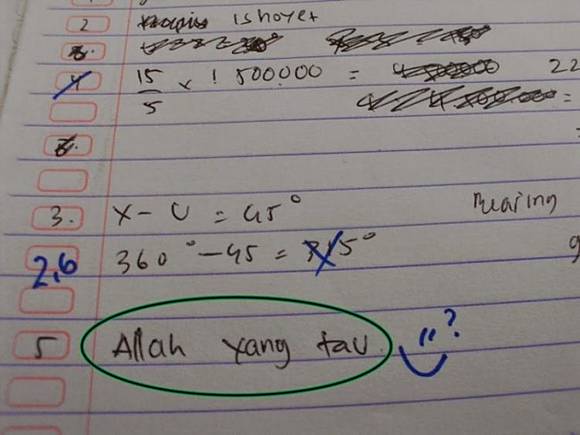 2 ishoyet
4 15/5 x 1 500.000 = 22
=
3. X - U = 45° Bearing
360° - 45 = 315° 9
2,6
5 Allah yang tau. ?